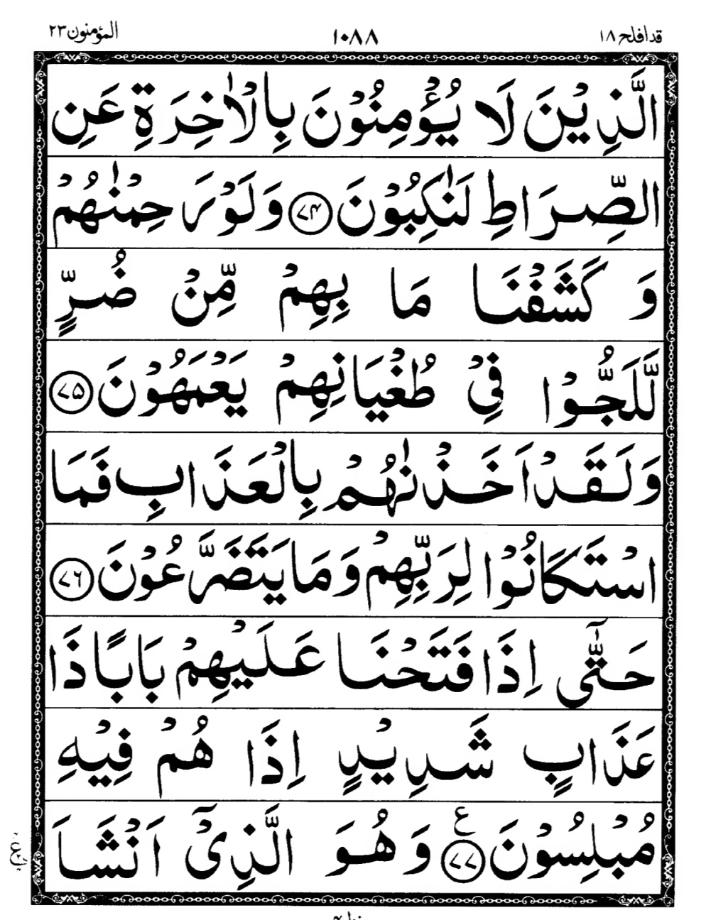 المؤمنون ٢٣ ١٠٨٨ قد افلح ١٨
الَّذِيْنَ لَا يُؤْمِنُوْنَ بِالْاٰخِرَةِ عَنِ
الصِّرَاطِ لَنٰكِبُوْنَ ﴿٧٤﴾ وَلَوْ رَحِمْنٰهُمْ
وَ كَشَفْنَا مَا بِهِمْ مِّنْ ضُرٍّ
لَّلَجُّوْا فِيْ طُغْيَانِهِمْ يَعْمَهُوْنَ ﴿٧٥﴾
وَلَقَدْ اَخَذْنٰهُمْ بِالْعَذَابِ فَمَا
اسْتَكَانُوْا لِرَبِّهِمْ وَمَا يَتَضَرَّعُوْنَ ﴿٧٦﴾
حَتّٰۤى اِذَا فَتَحْنَا عَلَيْهِمْ بَابًا ذَا
عَذَابٍ شَدِيْدٍ اِذَا هُمْ فِيْهِ
مُبْلِسُوْنَ ﴿٧٧﴾ ع وَهُوَ الَّذِيْۤ اَنْشَاَ